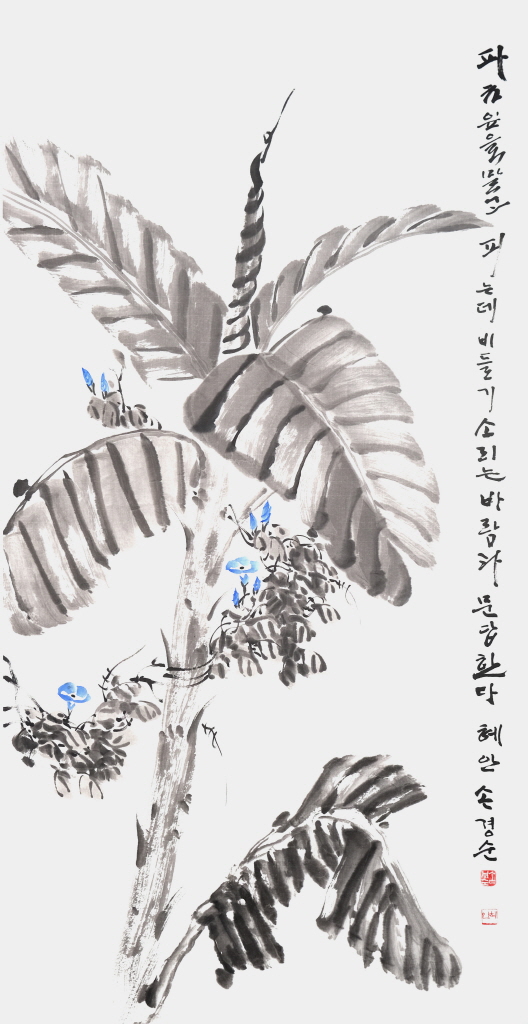 파초 피는데 비들기 소리는 바람과 문답한다 혜안 손경순